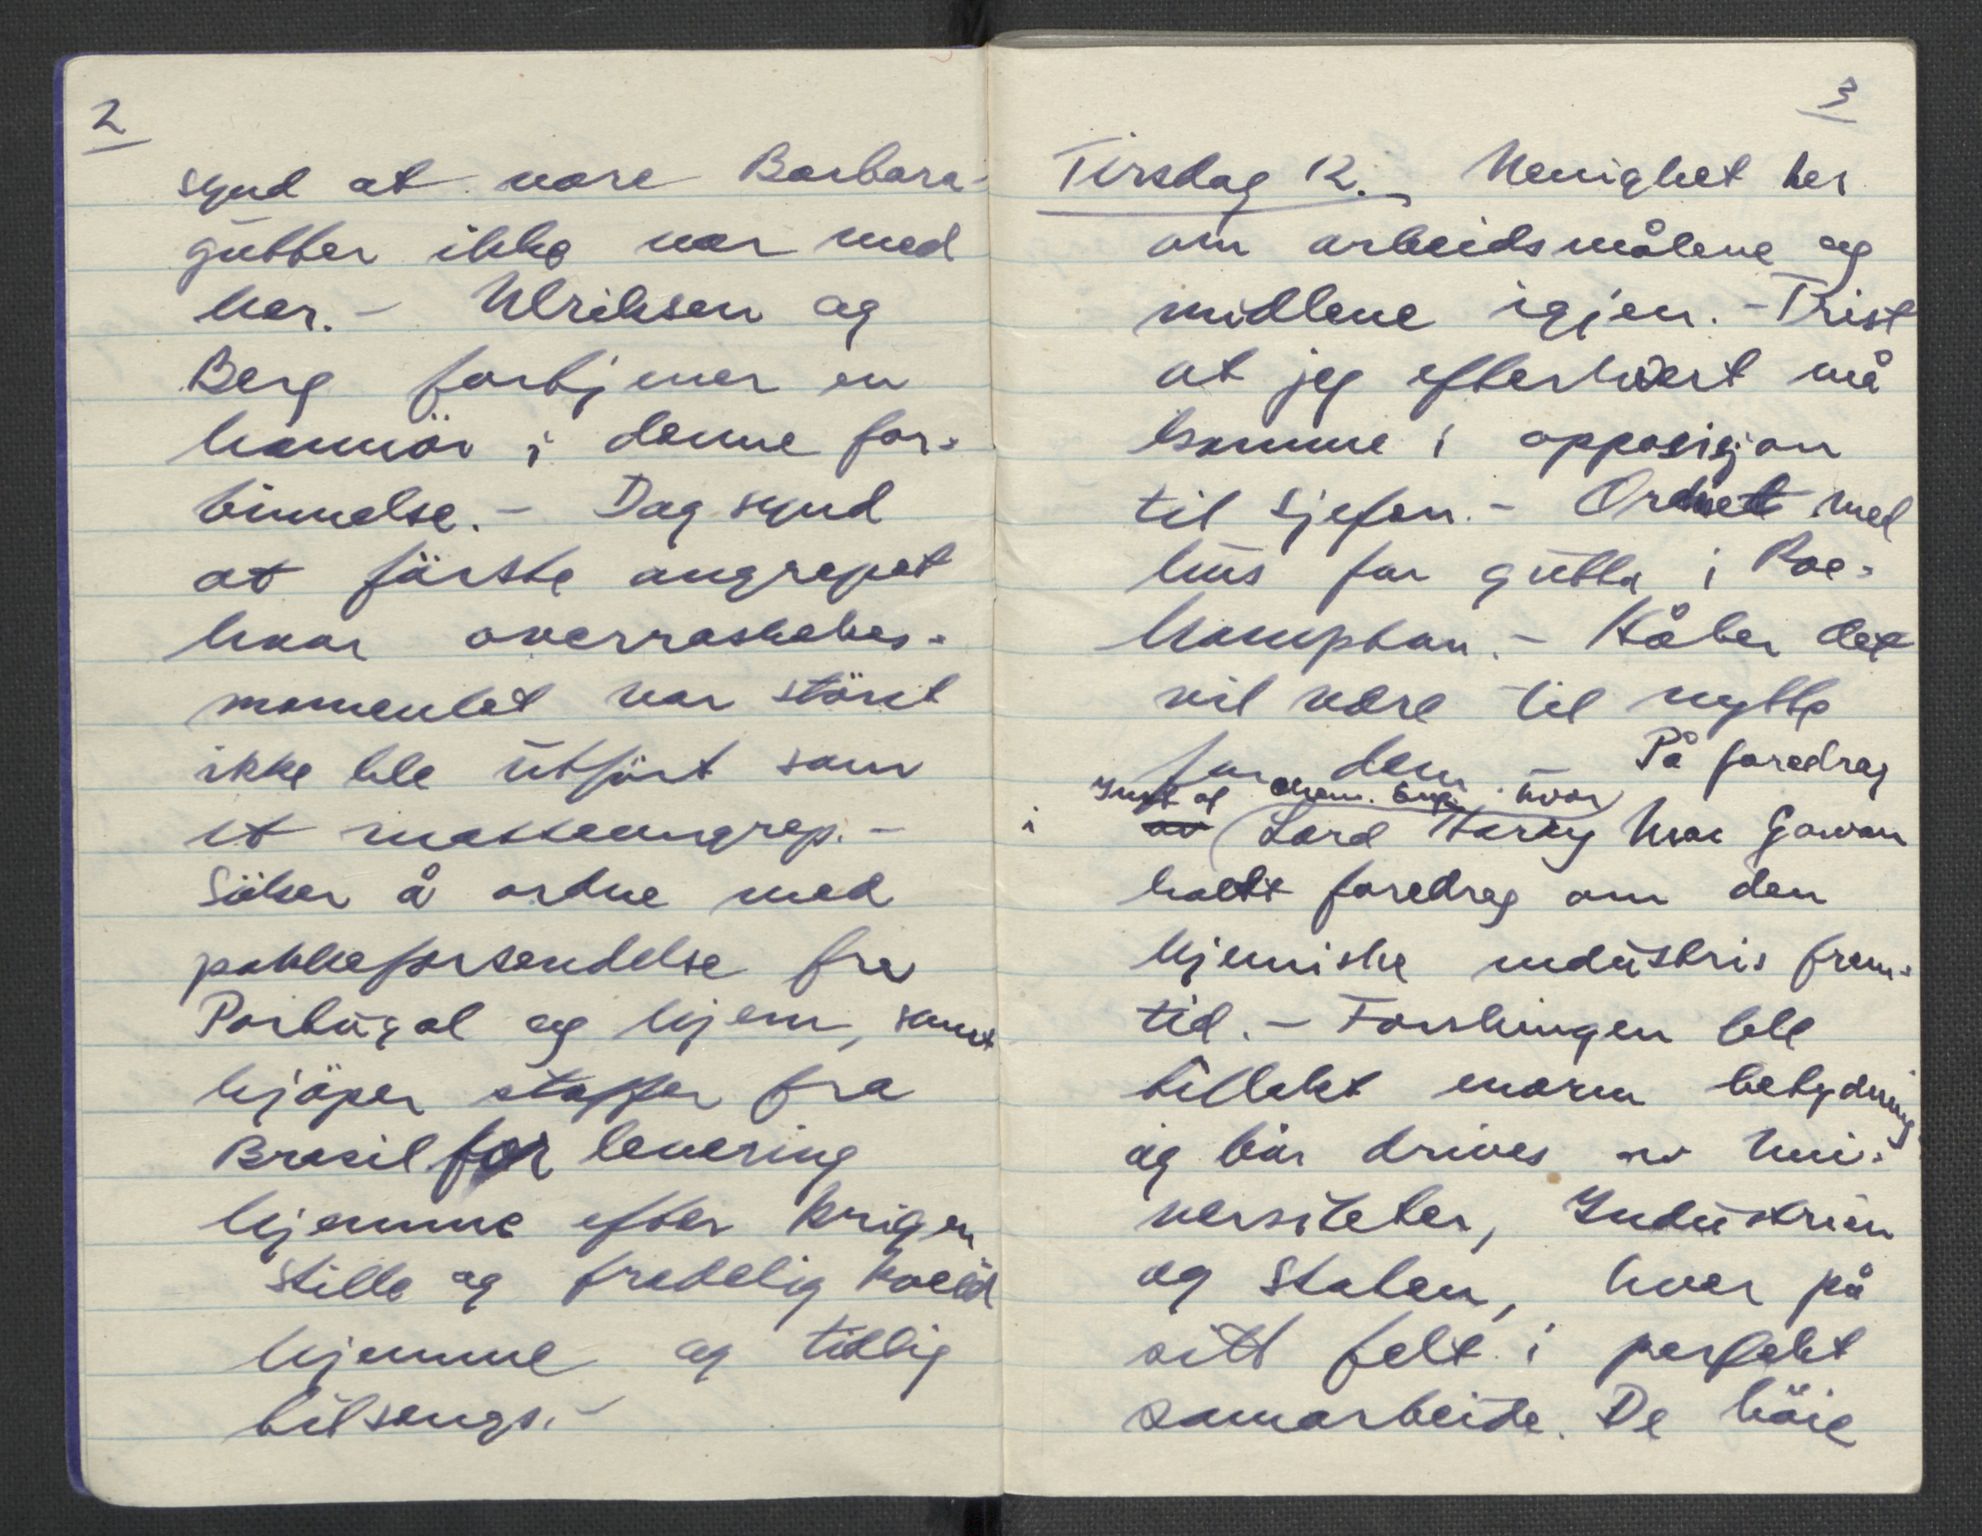 2
synd at våre Barbara-
gutter ikke var med
her. - Ulriksen og
Berg fortjener en
honnör i denne for-
binnelse. - Dog synd
at förste angrepet
hvor overraskelses-
momentet var störst
ikke ble utfört som
et masseangrep. -
Söker å ordne med
pakkeforsendelse fra
Portugal og hjem, samt
kjöper stoffer fra
Brasil for levering
hjemme efter krigen
Stille og fredelig kveld
hjemme og tidlig
tilsengs. -
3
Tirsdag 12. Uenighet her
om arbeidsmålene og
midlene igjen. - Trist
at jeg efterhvert må
komme i opposisjon
til sjefen. - Ordnet med
hus for gutta i Roe-
hampton. - Håber det
vil være til nytte
for dem - På foredrag
i Inst of Chem. Eng. hvor
av Lord Harry Mac Gowan
holdt foredrag om den
kjemiske industris frem-
tid. - Forskningen ble
tillakt enorm betydning
og bör drives av Uni-
versiteter, Industrien
og Staten, hver på
sitt felt i perfekt
samarbeide. De höie